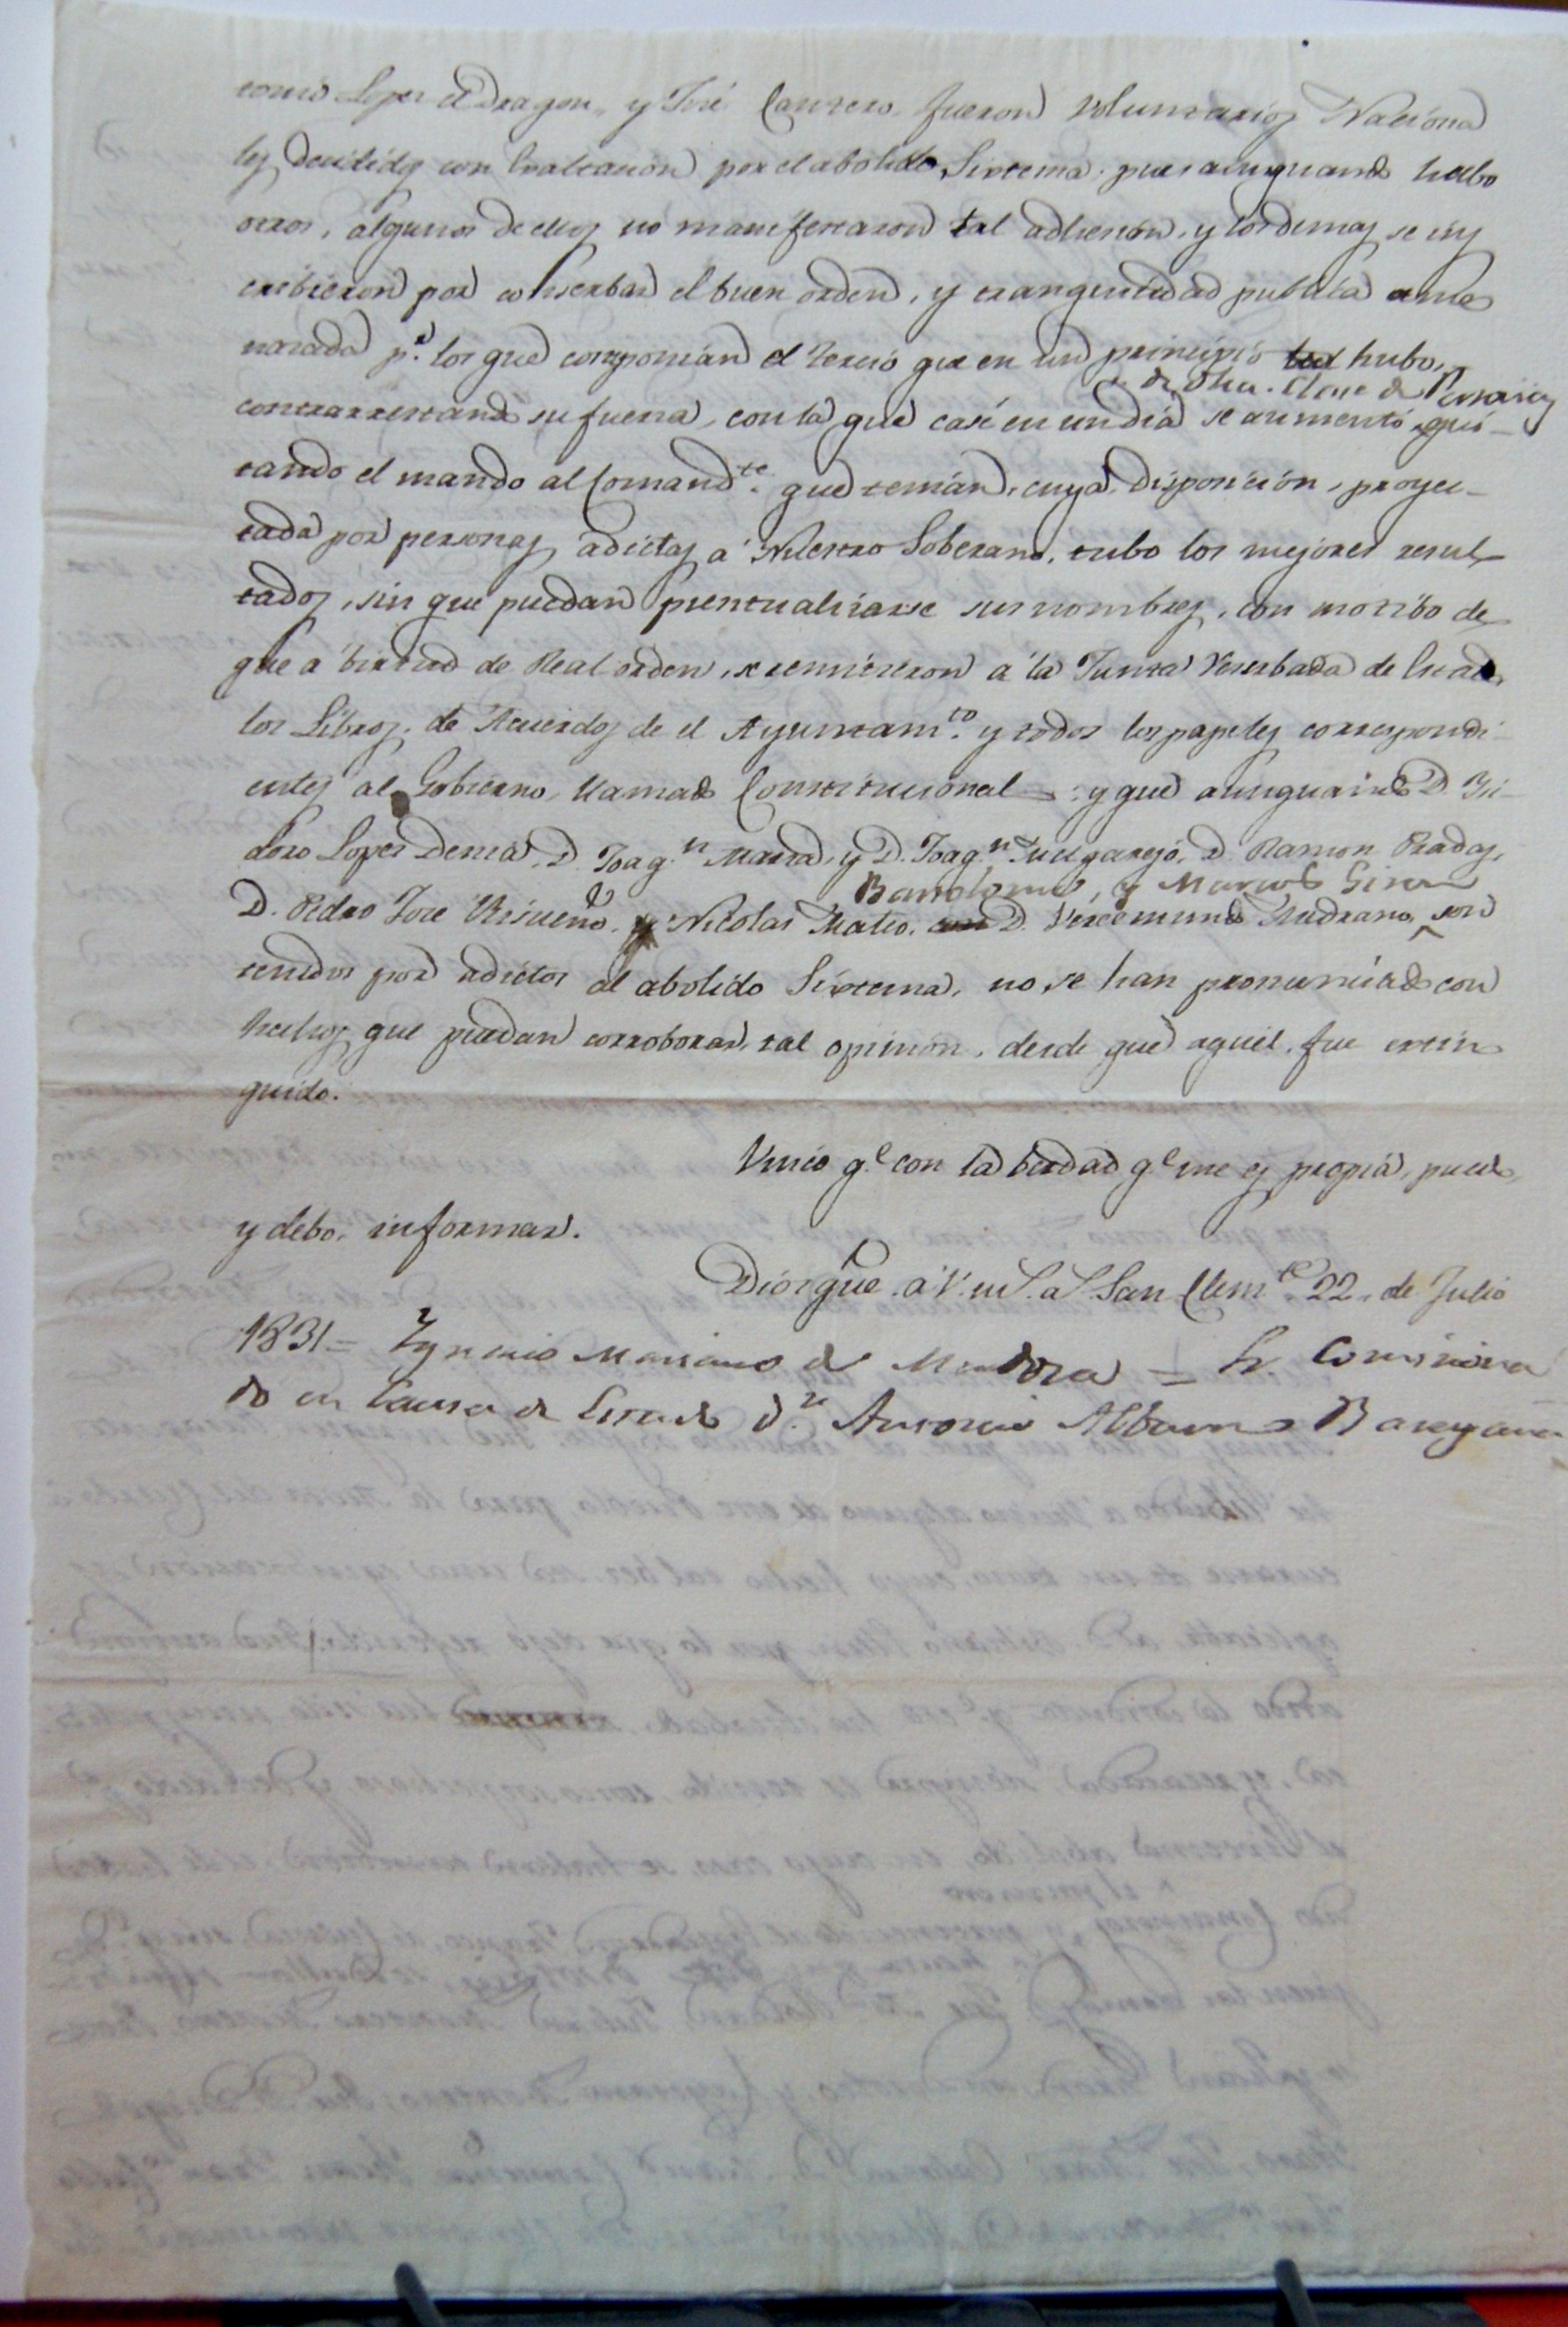 Lopez el Dragon, y José Carnero fueron Voluntarios Naciona
les decididos con Exaltacion por el abolido Sistema, pues aunquando hubo
otros, algunos de ellos no manifestaron tal adhesion, y los demas se ins
cribieron por conserbar el buen orden, y tranquilidad publica ame
nazada p.r los que componian el tercio que en un principio hubo,
de dha. clase de Personas
contrarrestando su fuerza, con la que casi en un dia se aumentó qui-
tando el mando al Comand.te que tenian, cuya disposicion, proyec-
tada por personas adictas á Nuestro Soberano, tubo los mejores resul
tados, sin que puedan puntualizarse sus nombres, con motibo de
que a birtud de Real orden, se remitieron á la Junta Reserbada de Estado,
los Libros de Acuerdos de el Ayuntam.to y todos los papeles correspondi-
entes al Gobierno llamado Constitucional =: y que aunquando D. Isi-
doro Lopez D. Joaq.n y D. Joaq.n Melgarejo, D. Ramon Pradas,
Bartolomé, y Marcos
D. Pedro José Risueño, y Nicolas Mateo, D. Veremundo son
tenidos por adictos al abolido Sistema, no se han pronunciado con
hechos que puedan corroborar tal opinion, desde que aquel fue extin
guido.
Unico q.e con la berdad q.e me es propia, puedo
y debo informar.
Dios gue. á V. m.s a.s San Clem.te 22 de Julio
1831 = Ygnacio Mariano de Mendoza = Sr. Comisiona
do en Causa de Estado D.n Antonio